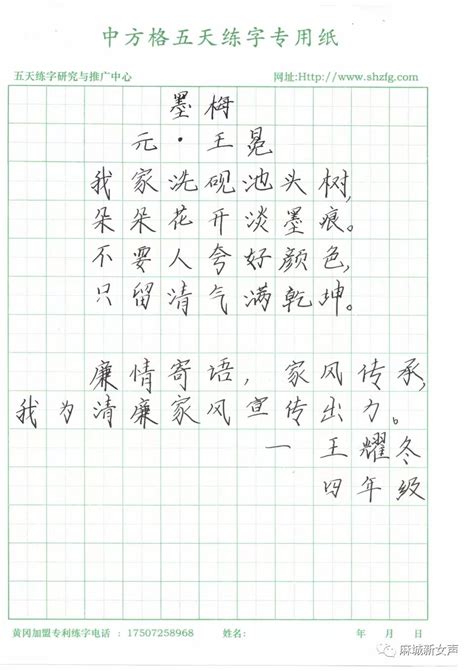 中方格五天练字专用纸
五天练字研究与推广中心 网址:Http://www.shzfg.com
墨梅
元·王冕
我家洗砚池头树,
朵朵花开淡墨痕。
不要人夸好颜色,
只留清气满乾坤。
廉情寄语,家风传承,
我为清廉家风宣传出力。
一 王耀冬
四年级
黄冈加盟专利练字电话 : 17507258968 姓名: 年 月 日
麻城新女声